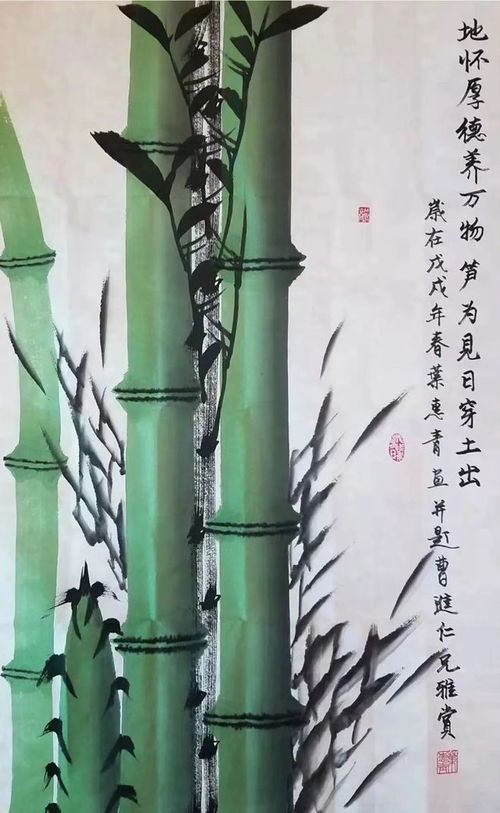 地怀厚德养万物笋为見日穿土出
歲在戊戌年春葉惠青画并题曹進仁兄雅赏